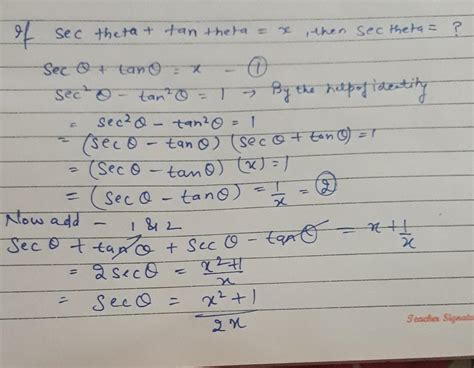 If sec theta + tan theta = x, then sec theta = ?
Sec θ + tanθ = x - ①
Sec²θ - tan²θ = 1 → By the help of identity
= sec²θ - tan²θ = 1
= (sec θ - tanθ) (sec θ + tanθ) = 1
= (sec θ - tanθ) (x) = 1
= (sec θ - tanθ) = 1/x = ②
Now add - 1 & 2
Sec θ + tanθ + sec θ - tanθ = x + 1/x
= 2secθ = x²+1/x
= secθ = x²+1/2x
Teacher Signatu